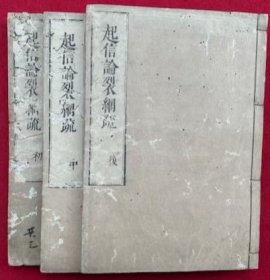 起信論裂網疏 後
起信論裂網疏 中
起信論裂網疏 初
共三